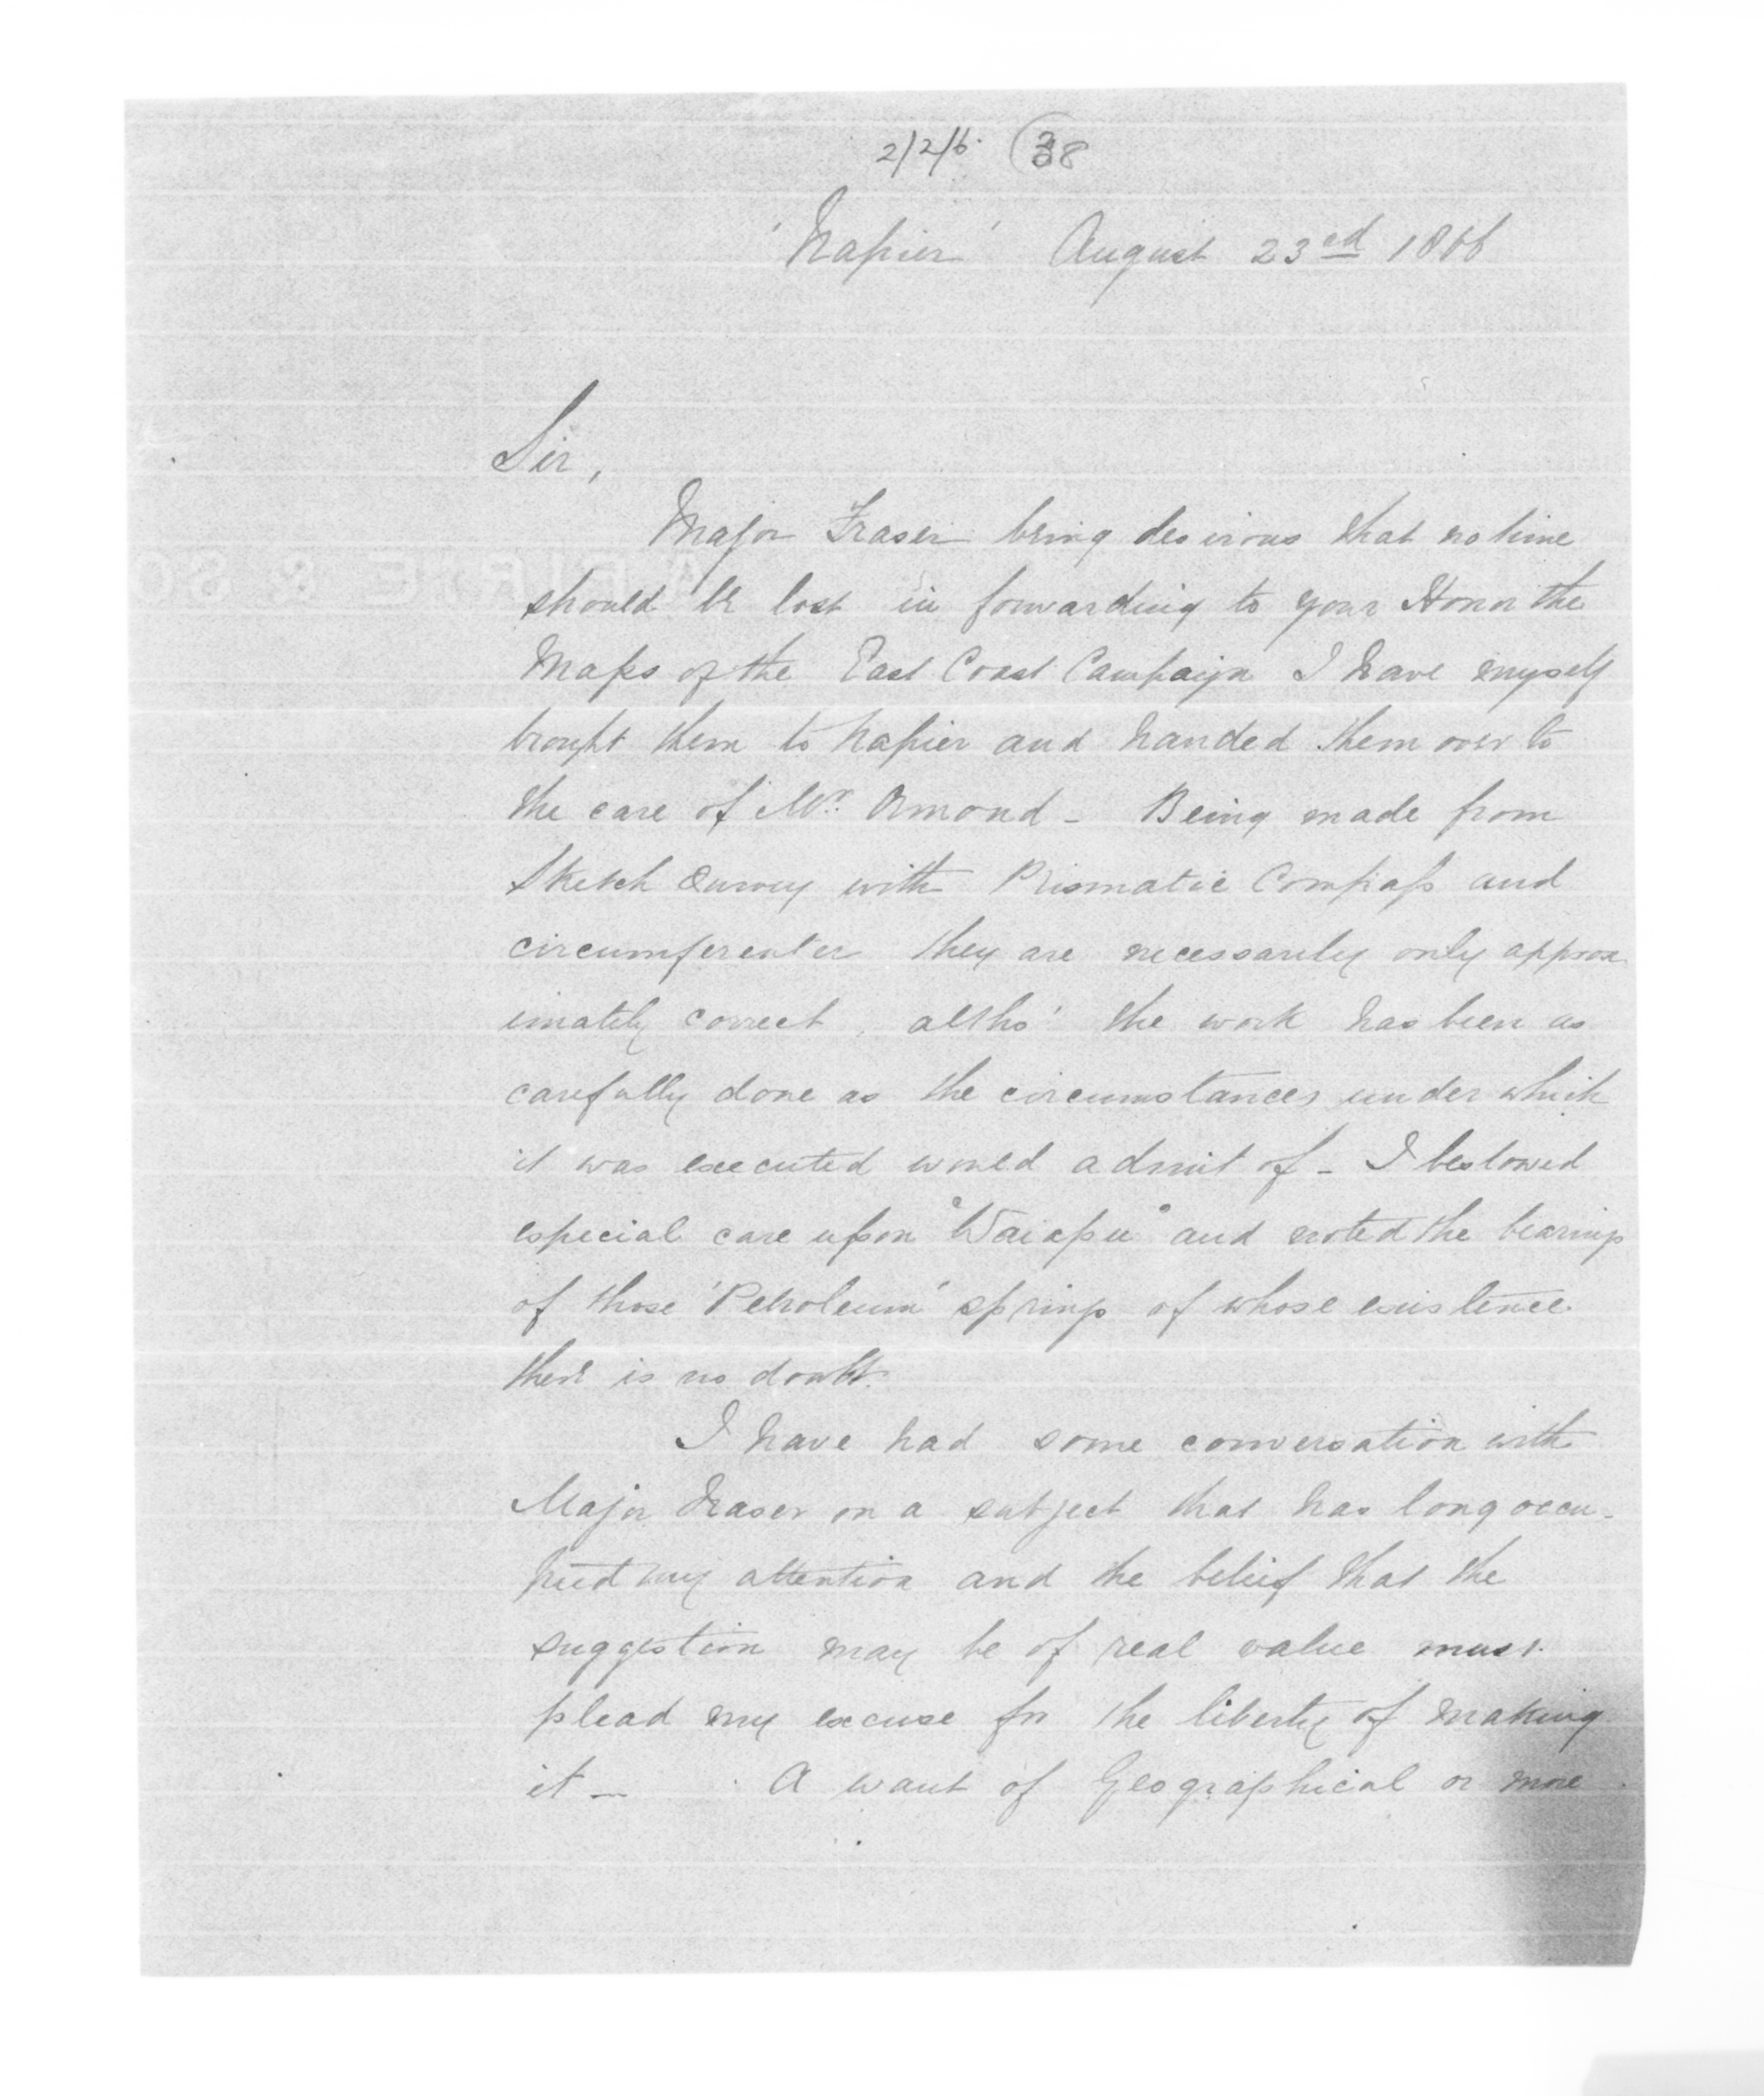 2/2/6. 38
'Napier' August 23rd 1866
Sir,
Major Fraser being desirous that no time
should be lost in forwarding to your Honor the
Maps of the East Coast Campaign I have myself
brought them to Napier and handed them over to
the care of Mr. Ormond - Being made from
Sketch Survey with Prismatic Compass and
circumferenter they are necessarily only approx
imately correct, altho' the work has been as
carefully done as the circumstances under which
it was executed would admit of - I bestowed
especial care upon "Waiapu" and noted the bearings
of those 'Petroleum' springs of whose existence
there is no doubt.
I have had some conversation with
Major Fraser on a subject that has long occu-
pied my attention and the belief that the
suggestion may be of real value must
plead my excuse for the liberty of making
it - A want of Geographical or more